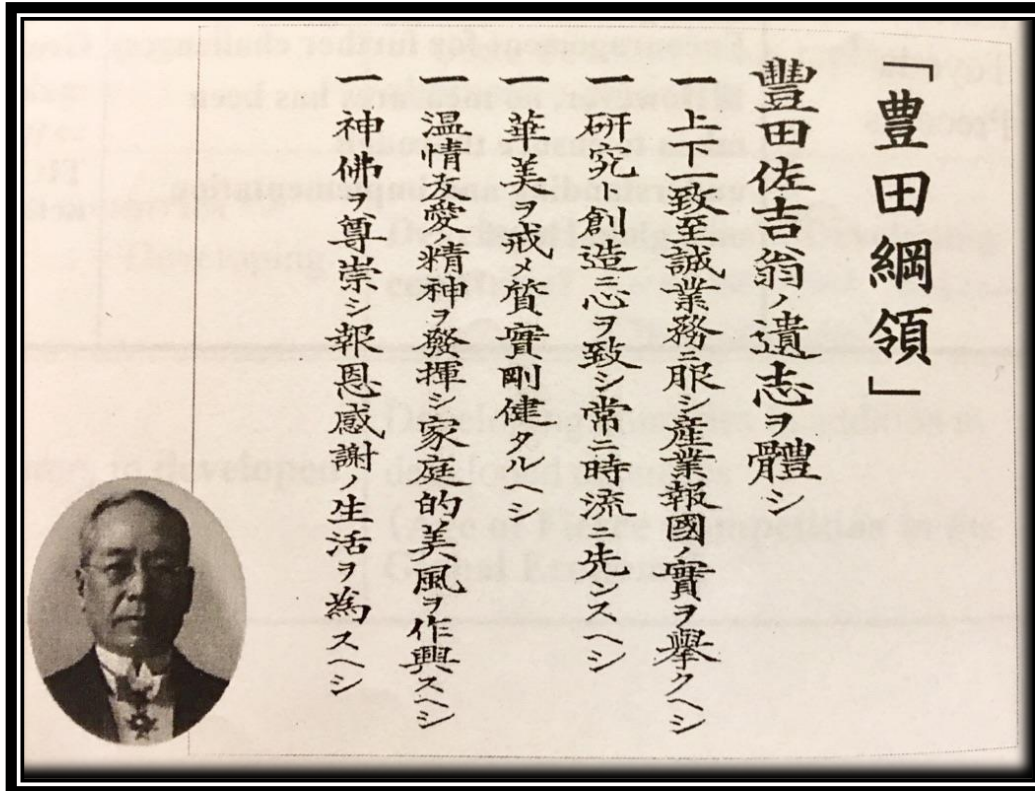 「豊田綱領」
豐田佐吉翁ノ遺志ヲ體シ
一 上下一致至誠業務ニ服シ産業報國ノ實ヲ擧クヘシ
一 研究ト創造ニ心ヲ致シ常ニ時流ニ先ンスヘシ
一 華美ヲ戒メ質實剛健タルヘシ
一 温情友愛ノ精神ヲ發揮シ家庭的美風ヲ作興スヘシ
一 神佛ヲ尊崇シ報恩感謝ノ生活ヲ為スヘシ